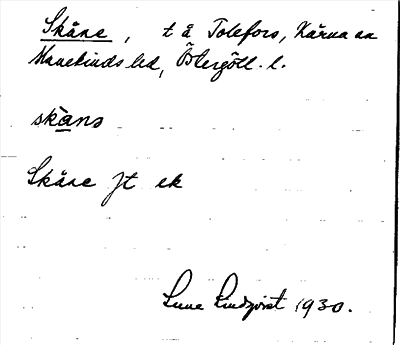 Skåne, t å Tolefors, Kärna sn
Hanekinds hd, Östergötl. l.
skàns
Skåne Jt ek
Sune Lindqvist 1930.